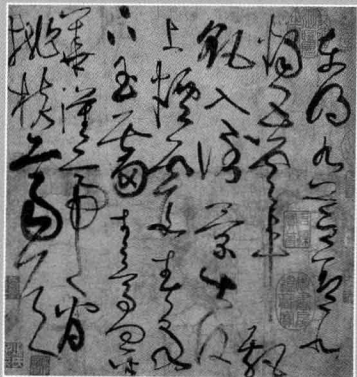 東明九芝蓋北
燭五雲車飄
颻入倒景出沒
上煙霞春泉
下玉霤青鳥向金
華漢帝看
桃核齊侯問